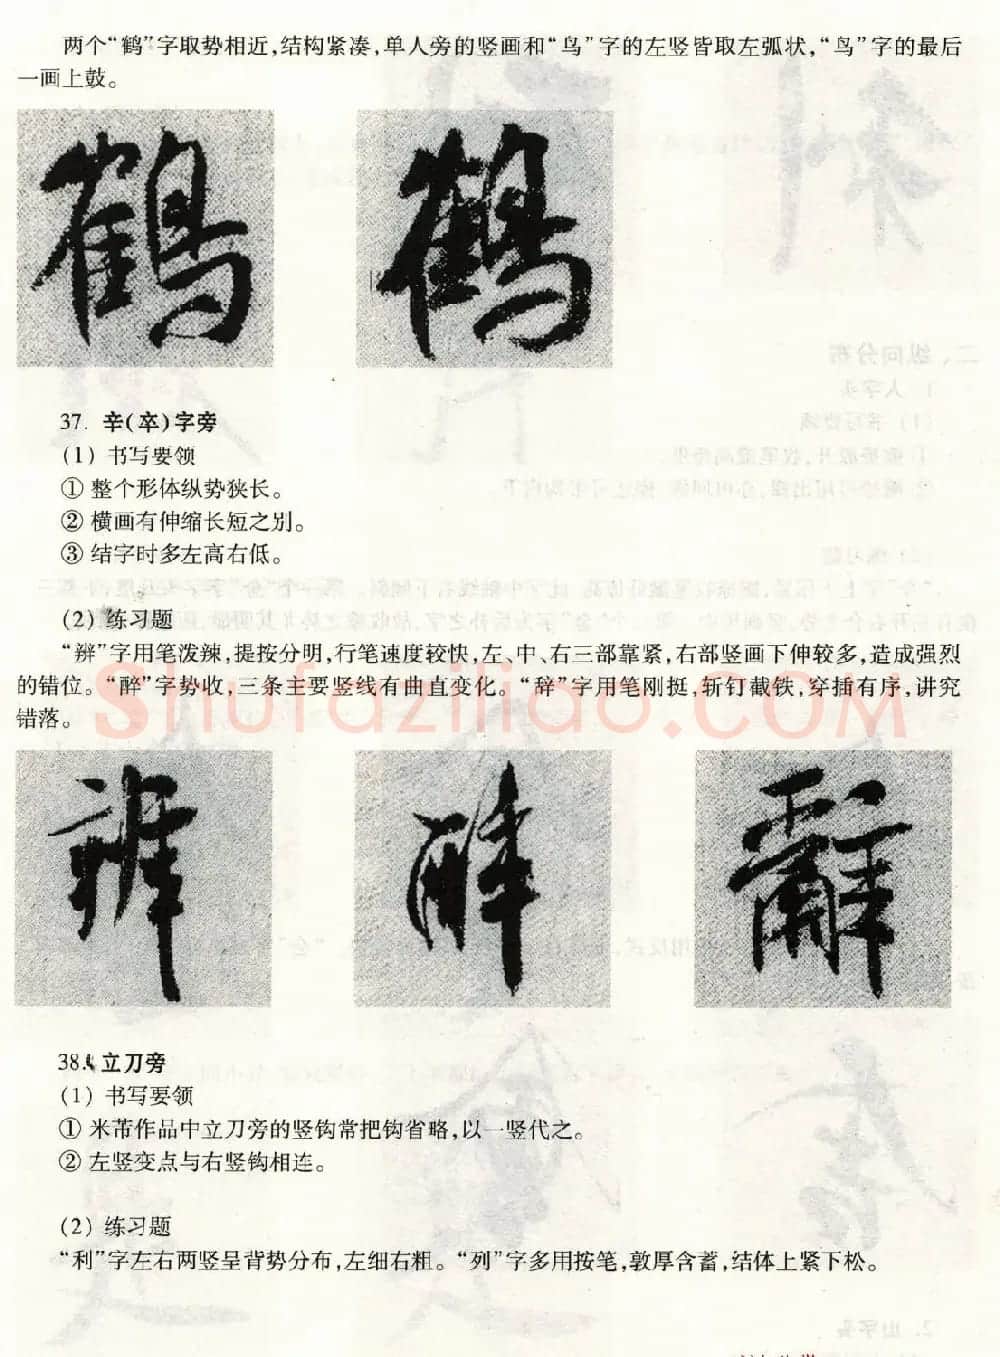 两个“鹤”字取势相近,结构紧凑,单人旁的竖画和“鸟”字的左竖皆取左弧状,“鸟”字的最后
一画上鼓。
鹤 鹤
37. 辛(卒)字旁
(1) 书写要领
① 整个形体纵势狭长。
② 横画有伸缩长短之别。
③ 结字时多左高右低。
(2) 练习题
“辨”字用笔泼辣,提按分明,行笔速度较快,左、中、右三部靠紧,右部竖画下伸较多,造成强烈
的错位。“醉”字势收,三条主要竖线有曲直变化。“辞”字用笔刚挺,斩钉截铁,穿插有序,讲究
错落。
Shufaziliao.COM
辨 醉 辭
38. 立刀旁
(1) 书写要领
① 米芾作品中立刀旁的竖钩常把钩省略,以一竖代之。
② 左竖变点与右竖钩相连。
(2) 练习题
“利”字左右两竖呈背势分布,左细右粗。“列”字多用按笔,敦厚含蓄,结体上紧下松。